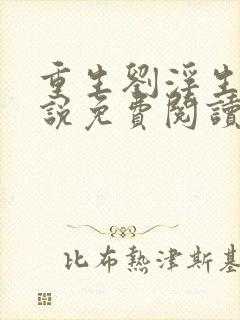 重生劉淫生
說免費閱讀
比布熱津斯基